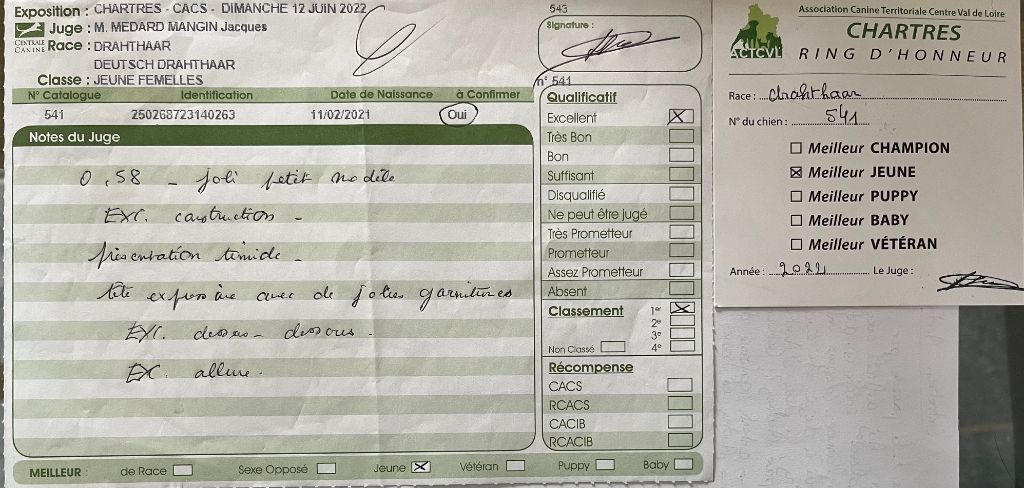 Exposition : CHARTRES - CACS - DIMANCHE 12 JUIN 2022
CENTRALE CANINE
Juge : M. MEDARD MANGIN Jacques
Race : DRAHTHAAR
DEUTSCH DRAHTHAAR
Classe : JEUNE FEMELLES
N° Catalogue Identification Date de Naissance à Confirmer
541 250268723140263 11/02/2021 Oui
Notes du Juge
0,58 - joli petit modèle
EXC. construction -
présentation timide -
tête expressive avec de jolies garnitures
EXC. dessus - dessous.
EXC. allure.
MEILLEUR : de Race Sexe Opposé Jeune Vétéran Puppy Baby
543
Signature :
n° 541
Qualificatif
Excellent
Très Bon
Bon
Suffisant
Disqualifié
Ne peut être jugé
Très Prometteur
Prometteur
Assez Prometteur
Absent
Classement 1er
2e
3e
Non Classé 4e
Récompense
CACS
RCACS
CACIB
RCACIB
ACTCVL
Association Canine Territoriale Centre Val de Loire
CHARTRES
RING D'HONNEUR
Race : drahthaar
N° du chien : 541
Meilleur CHAMPION
Meilleur JEUNE
Meilleur PUPPY
Meilleur BABY
Meilleur VÉTÉRAN
Année : 2022 Le Juge :